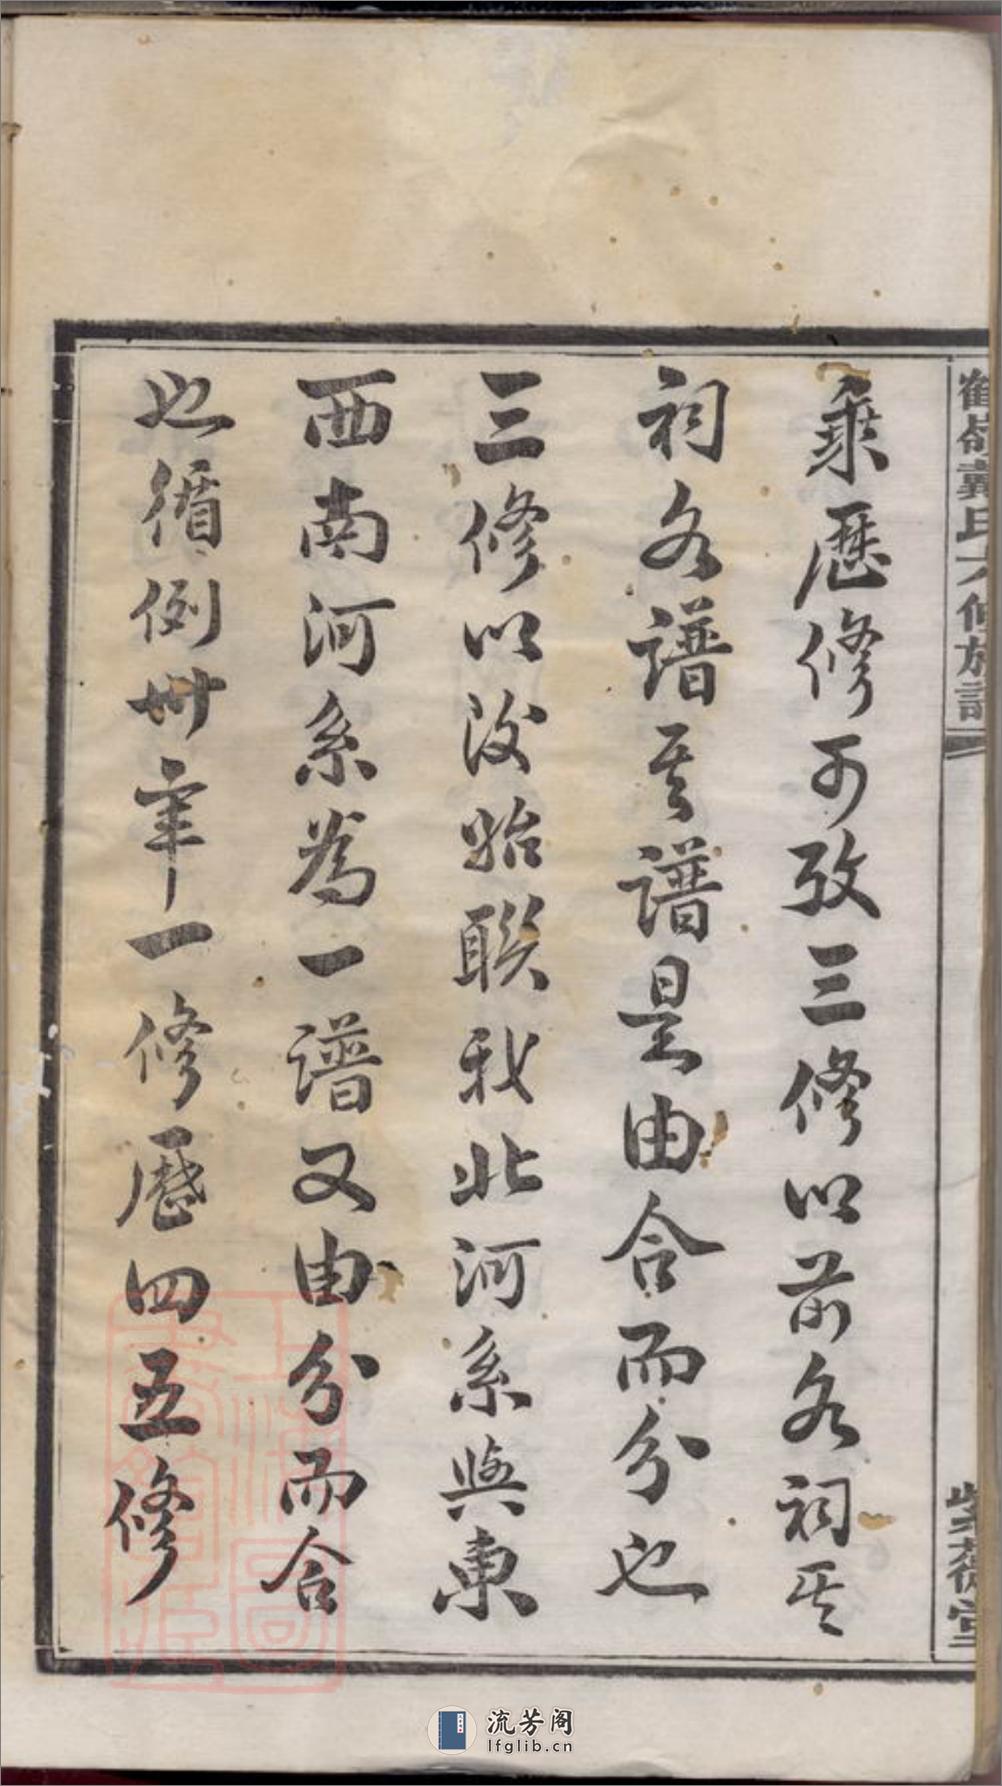 鶴嶺戴氏六修族譜
紫薇堂
乘歷修可攷三修以前各祠其
祠各譜其譜是由合而分也
三修以後始聯我北河系與東
西南河系為一譜又由分而合
也循例卅年一修歷四五修
上海圖書館藏
流芳阁
lfglib.cn